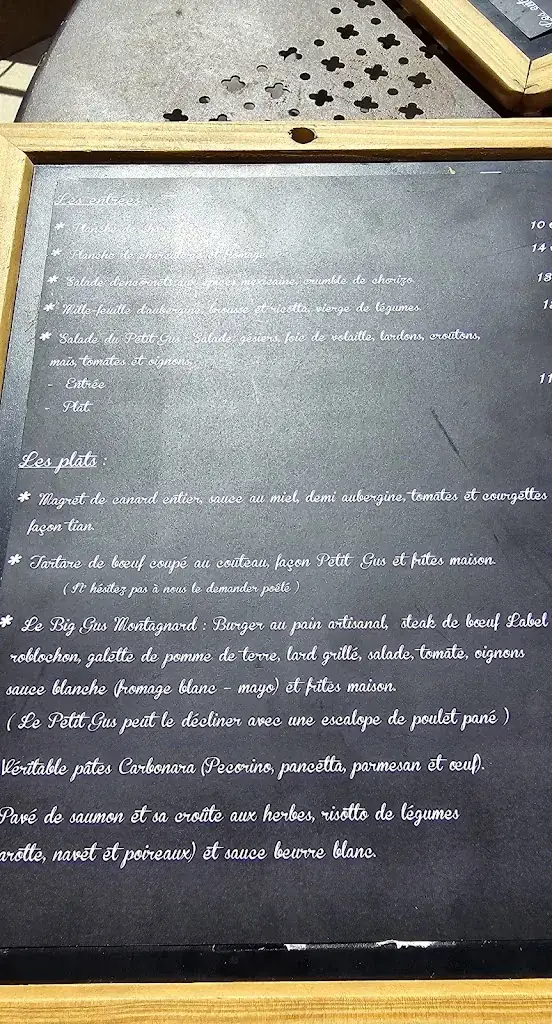 Les entrées
* Planche de 10
* Planche de charcuterie et fromage 14
* Salade d'encornets aux épices mexicaine, crumble de chorizo. 13
* Mille-feuille d'aubergine, brousse et ricotta, vierge de légumes.
* Salade du Petit Gus : Salade, gésiers, foie de volaille, lardons, croûtons,
maïs, tomates et oignons.
- Entrée 11
- Plat.
Les plats :
* Magret de canard entier, sauce au miel, demi aubergine, tomates et courgettes
façon tian.
* Tartare de bœuf coupé au couteau, façon Petit Gus et frites maison.
( N' hésitez pas à nous le demander poêlé )
* Le Big Gus Montagnard : Burger au pain artisanal, steak de bœuf Label
roblochon, galette de pomme de terre, lard grillé, salade, tomate, oignons
sauce blanche (fromage blanc - mayo) et frites maison.
( Le Petit Gus peut le décliner avec une escalope de poulet pané )
Véritable pâtes Carbonara (Pecorino, pancetta, parmesan et œuf).
Pavé de saumon et sa croûte aux herbes, risotto de légumes
arotte, navet et poireaux) et sauce beurre blanc.